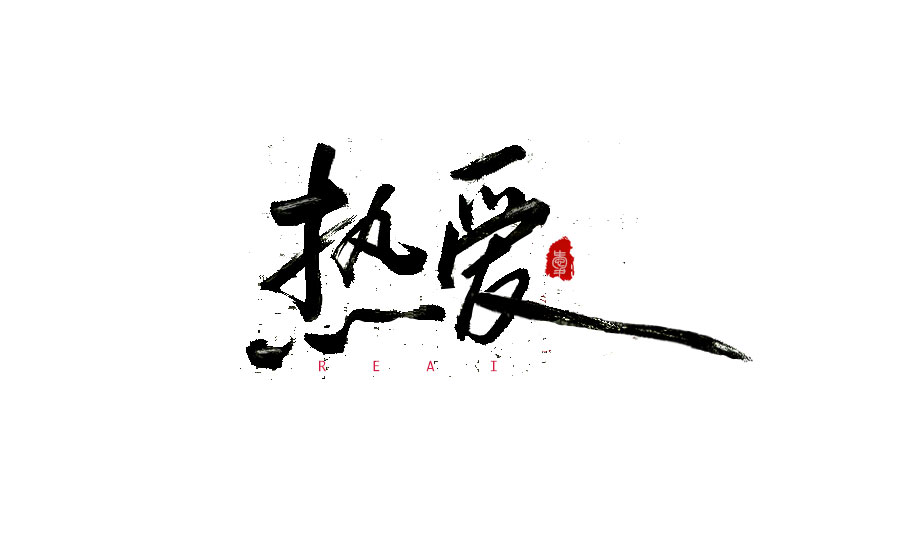 热爱
REAI